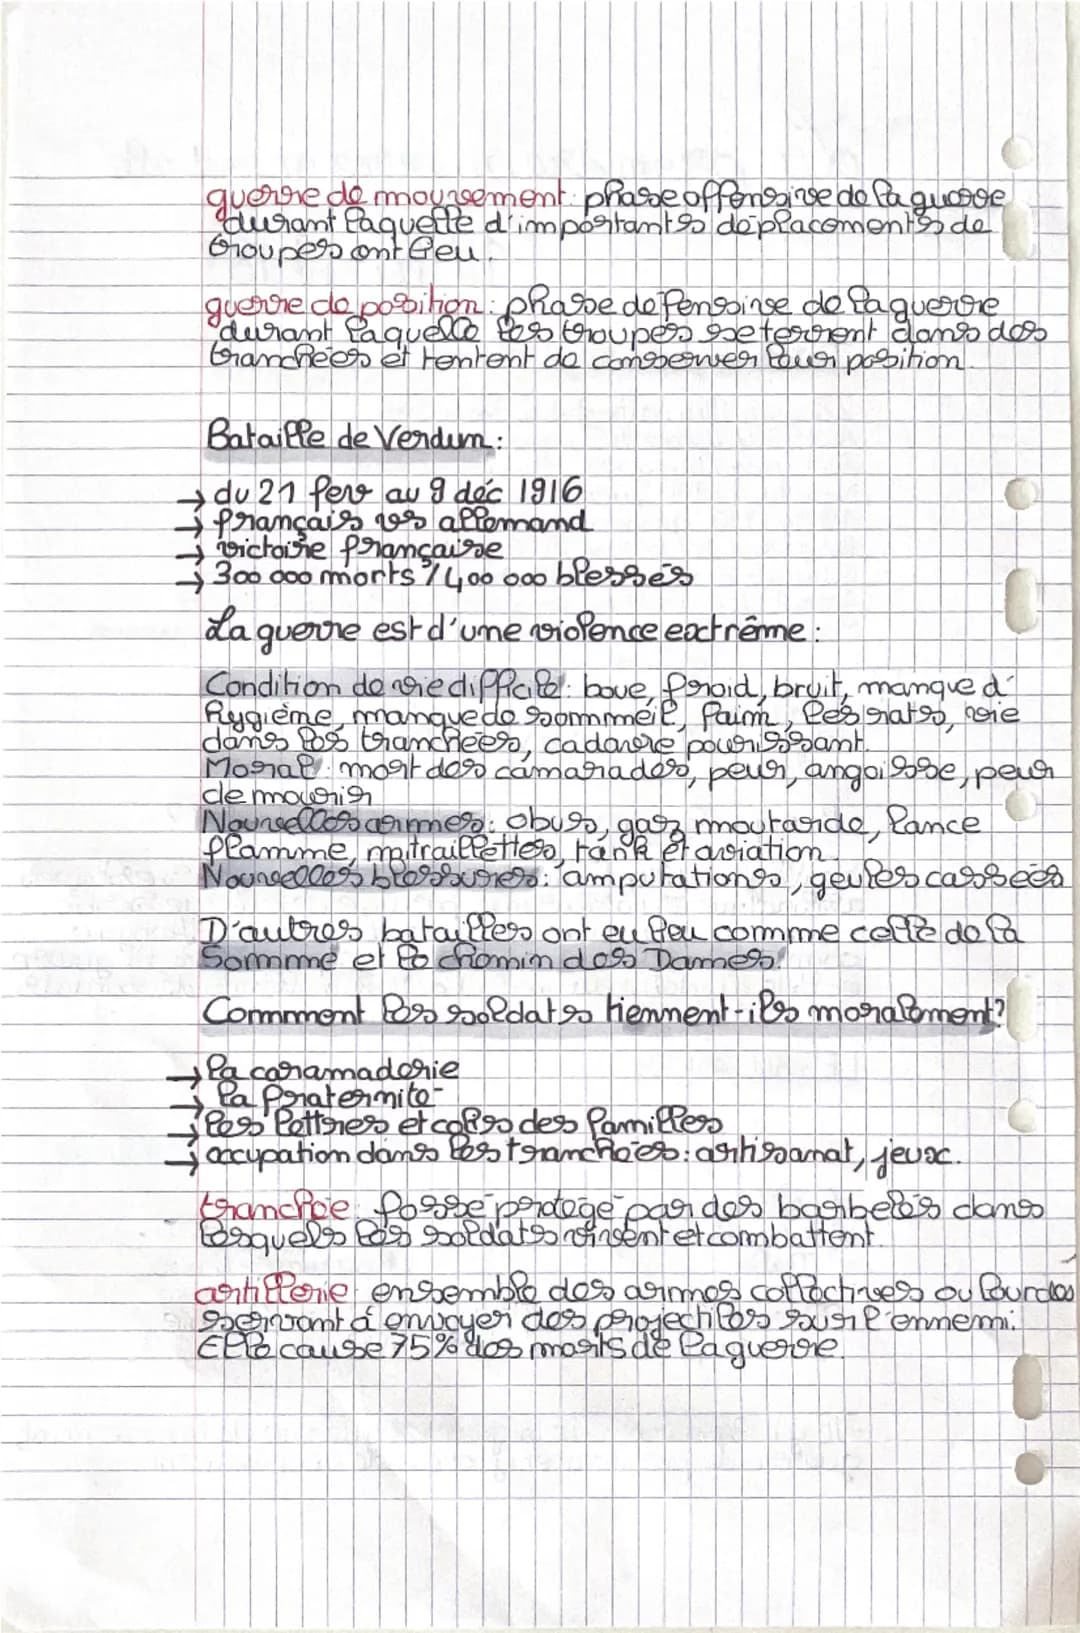 guerre de mouvement : phase offensive de la guerre
durant laquelle d'importants déplacements de
troupes ont lieu.
guerre de position : phase défensive de la guerre
durant laquelle les troupes se terrent dans des
tranchées et tentent de conserver leur position.
Bataille de Verdun :
→ du 21 fev au 9 déc 1916
→ français vs allemand
→ victoire française
→ 300 000 morts / 400 000 blessés
La guerre est d'une violence extrême :
Condition de vie difficile : boue, froid, bruit, manque d'
hygiène, manque de sommeil, faim, les rats, vie
dans les tranchées, cadavre pourissant.
Moral : mort des camarades, peur, angoisse, peur
de mourir
Nouvelles armes : obus, gaz moutarde, lance
flamme, mitraillettes, tank et aviation.
Nouvelles blessures : amputations, geules cassées
D'autres batailles ont eu lieu comme celle de la
Somme et le chemin des Dames.
Comment les soldats tiennent-ils moralement?
→ la camaraderie
→ la fraternité
→ les lettres et colis des familles
→ occupation dans les tranchées : artisanat, jeux.
tranchée : fossé protégé par des barbelés dans
lesquels les soldats vivent et combattent.
artillerie : ensemble des armes collectives ou lourdes
servant à envoyer des projectiles sur l'ennemi.
Elle cause 75% des morts de la guerre.